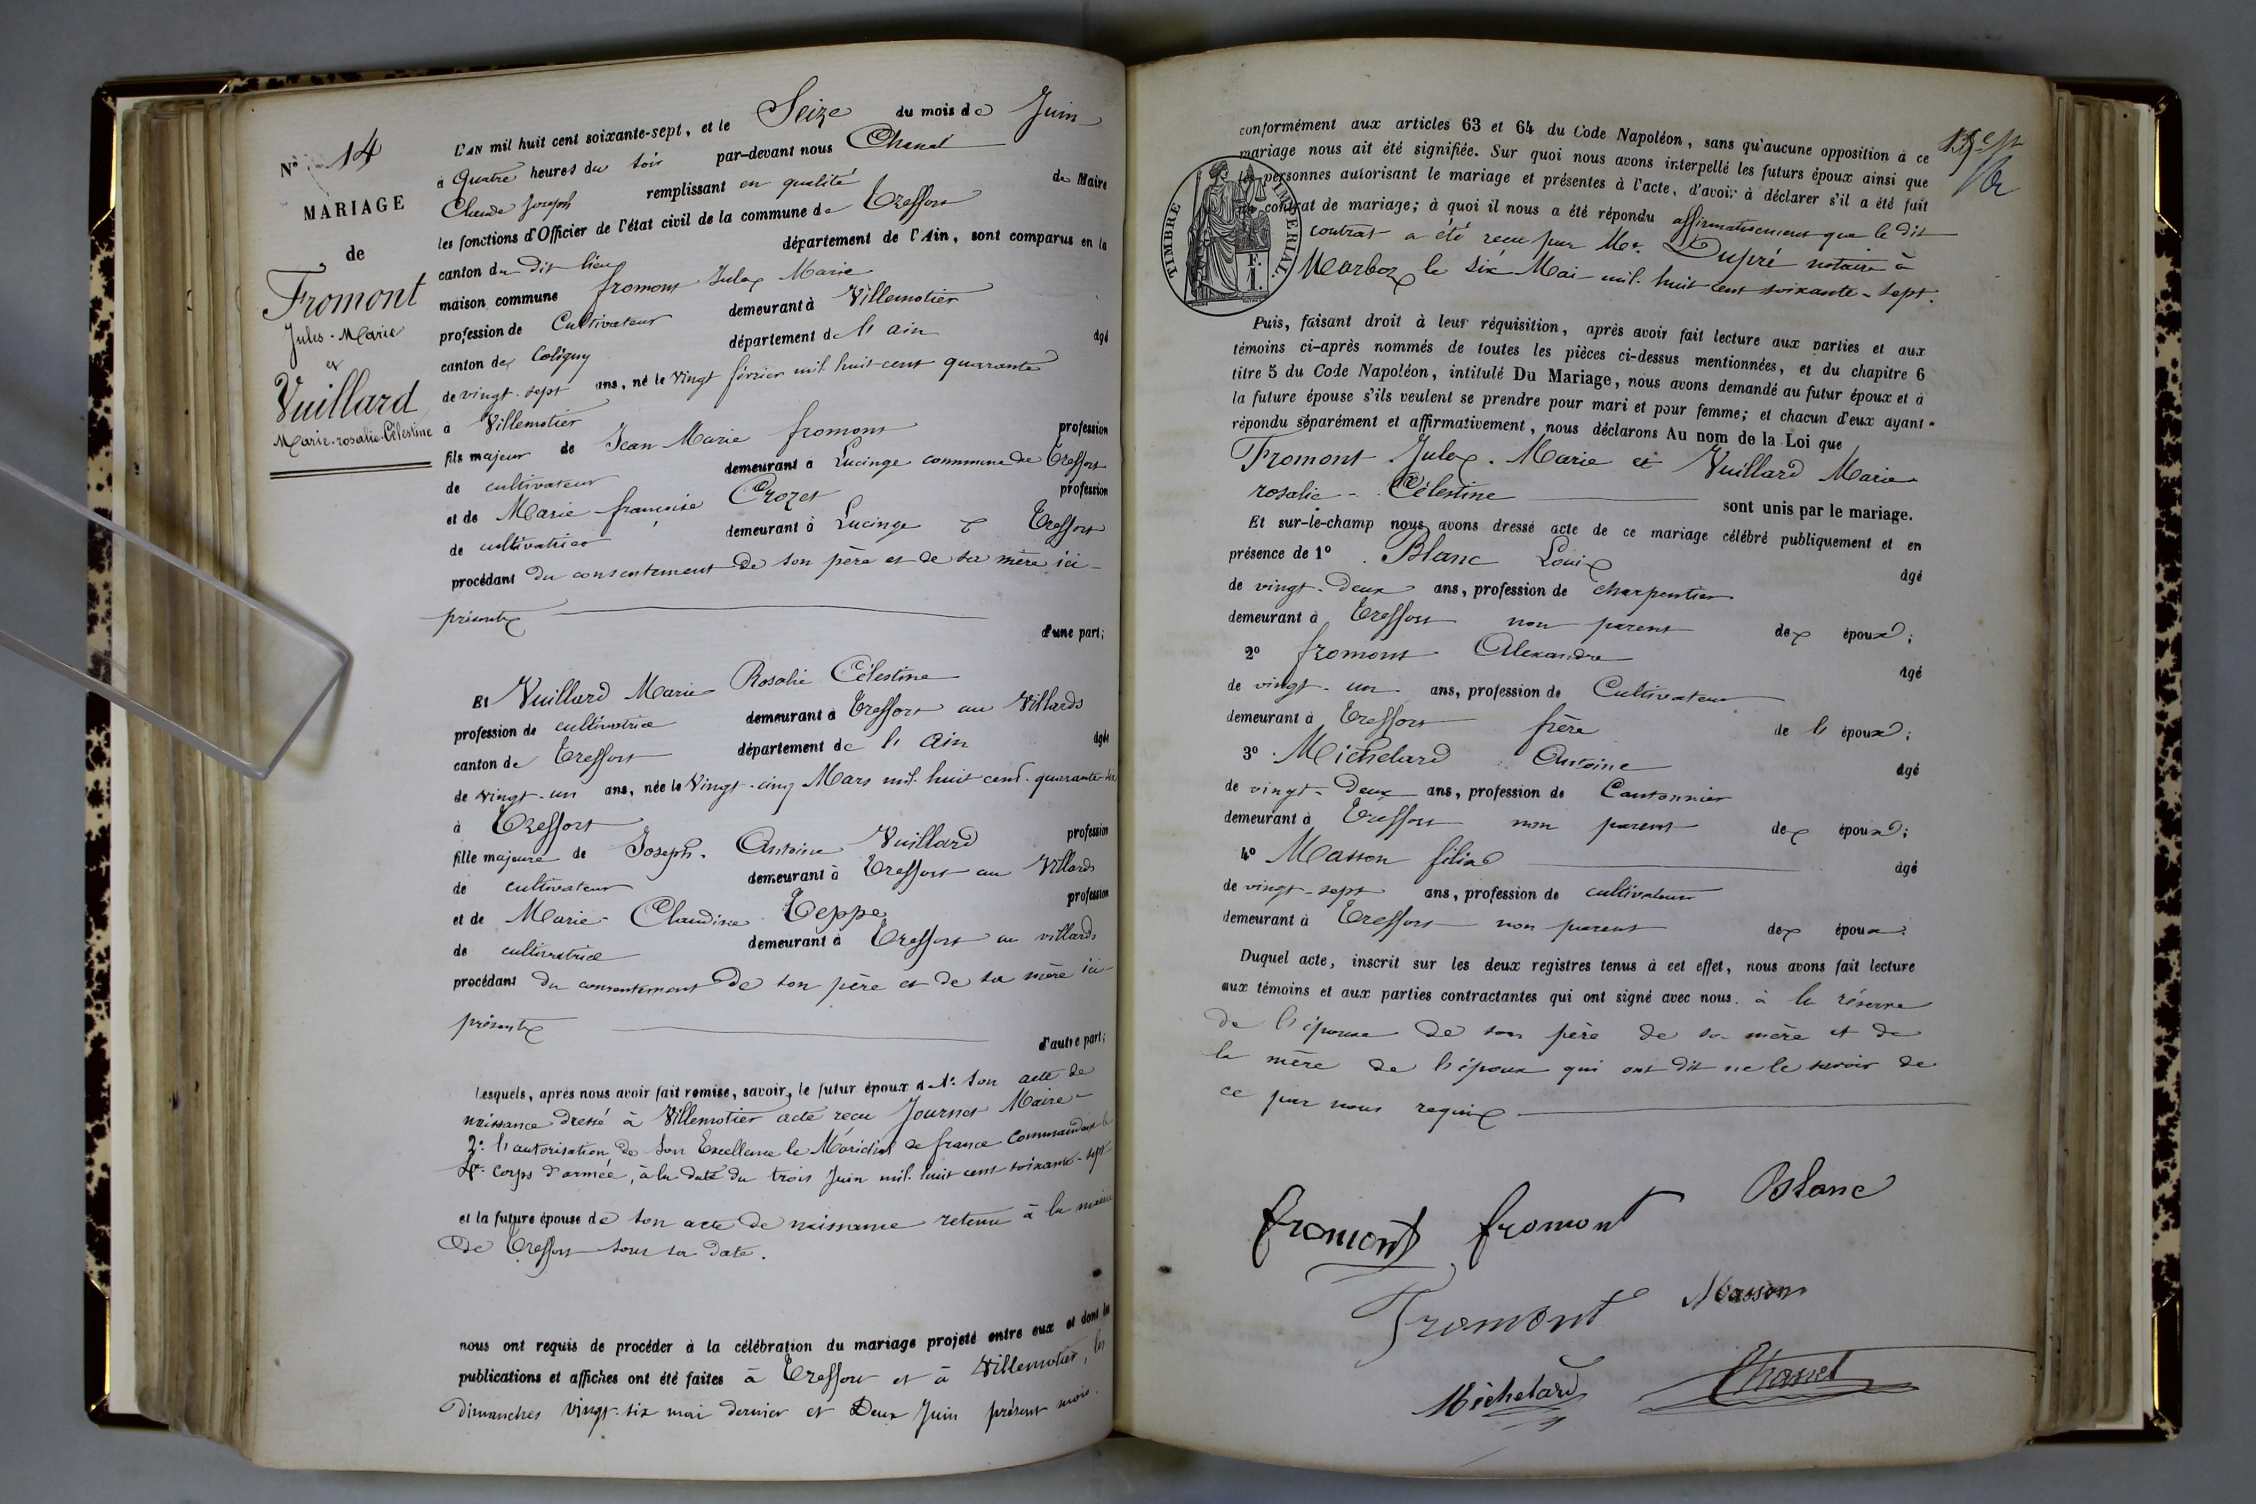 N° 14
MARIAGE
de
Fromont
Jules-Marie
et
Vuillard
Marie-rosalie-Célestine
L'AN mil huit cent soixante-sept, et le Seize du mois de Juin
à Quatre heures du soir par-devant nous Chanel
Claude Joseph remplissant en qualité de Maire
les fonctions d'Officier de l'état civil de la commune de Treffort
canton du dit lieu département de l'Ain, sont comparus en la
maison commune fromont Jules Marie
profession de Cultivateur demeurant à Villemotier
canton de Coligny département de l'ain âgé
de vingt-sept ans, né le vingt février mil huit cent quarante
à Villemotier
fils majeur de Jean Marie fromont profession
de cultivateur demeurant à Lucinge commune de Treffort
et de Marie françoise Crozet profession
de cultivatrice demeurant à Lucinge Treffort
procédant du consentement de son père et de sa mère ici-
présents
d'une part;
Et Vuillard Marie Rosalie Célestine
profession de cultivatrice demeurant à Treffort au Villards
canton de Treffort département de l'Ain âgée
de vingt-un ans, née le Vingt-cinq Mars mil huit cent quarante-six
à Treffort
fille majeure de Joseph-Antoine Vuillard profession
de cultivateur demeurant à Treffort au Villards
et de Marie-Claudine Teppe profession
de cultivatrice demeurant à Treffort au villards
procédant du consentement de son père et de sa mère ici-
présents
d'autre part;
Lesquels, après nous avoir fait remise, savoir, le futur époux d 1° son acte de
naissance dressé à Villemotier acte reçu Journet Maire-
2° l'autorisation de Son Excellence le Maréchal de france Commandant le
4e corps d'armée, à la date du trois Juin mil huit cent soixante-sept
et la future épouse de son acte de naissance retenu à la mairie
de Treffort sous sa date.
nous ont requis de procéder à la célébration du mariage projeté entre eux et dont les
publications et affiches ont été faites à Treffort et à Villemotier, les
Dimanches vingt-six mai dernier et Deux Juin présent mois.
conformément aux articles 63 et 64 du Code Napoléon, sans qu'aucune opposition à ce
mariage nous ait été signifiée. Sur quoi nous avons interpellé les futurs époux ainsi que
les personnes autorisant le mariage et présentes à l'acte, d'avoir à déclarer s'il a été fait
un contrat de mariage; à quoi il nous a été répondu affirmativement que le dit
contrat a été reçu par Me Dupré notaire à
Marboz le six Mai mil huit cent soixante-sept.
TIMBRE IMPÉRIAL.
F.
1.
Puis, faisant droit à leur réquisition, après avoir fait lecture aux parties et aux
témoins ci-après nommés de toutes les pièces ci-dessus mentionnées, et du chapitre 6
titre 5 du Code Napoléon, intitulé Du Mariage, nous avons demandé au futur époux et à
la future épouse s'ils veulent se prendre pour mari et pour femme; et chacun d'eux ayant
répondu séparément et affirmativement, nous déclarons Au nom de la Loi que
Fromont Jules-Marie et Vuillard Marie
rosalie-Célestine sont unis par le mariage.
Et sur-le-champ nous avons dressé acte de ce mariage célébré publiquement et en
présence de 1° Blanc Louis âgé
de vingt-deux ans, profession de charpentier
demeurant à Treffort non parent des époux;
2° fromont Alexandre âgé
de vingt-un ans, profession de Cultivateur
demeurant à Treffort frère de l'époux;
3° Michelard Antoine âgé
de vingt-Deux ans, profession de Cantonnier
demeurant à Treffort non parent des époux;
4° Masson félix âgé
de vingt-sept ans, profession de cultivateur
demeurant à Treffort non parent des époux.
Duquel acte, inscrit sur les deux registres tenus à cet effet, nous avons fait lecture
aux témoins et aux parties contractantes qui ont signé avec nous. à la réserve
de l'épouse de son père de sa mère et de
la mère de l'époux qui ont dit ne le savoir de
ce par nous requis
fromont fromont Blanc
Fromont Masson
Michelard Chanel